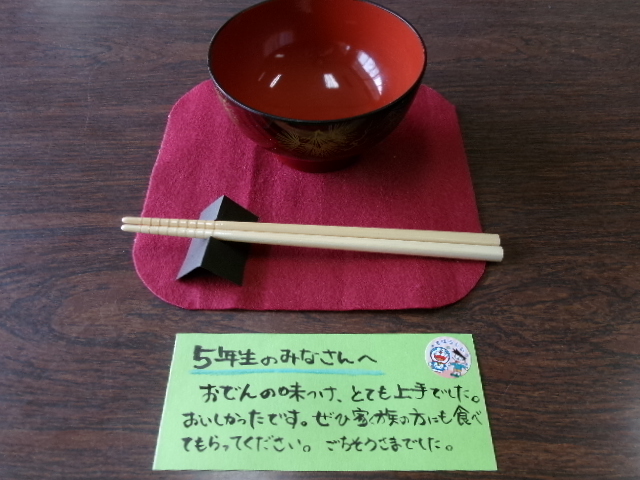 5年生のみなさんへ
おでんの味つけ、とても上手でした。
おいしかったです。ぜひ家族の方にも食べ
てもらってください。ごちそうさまでした。